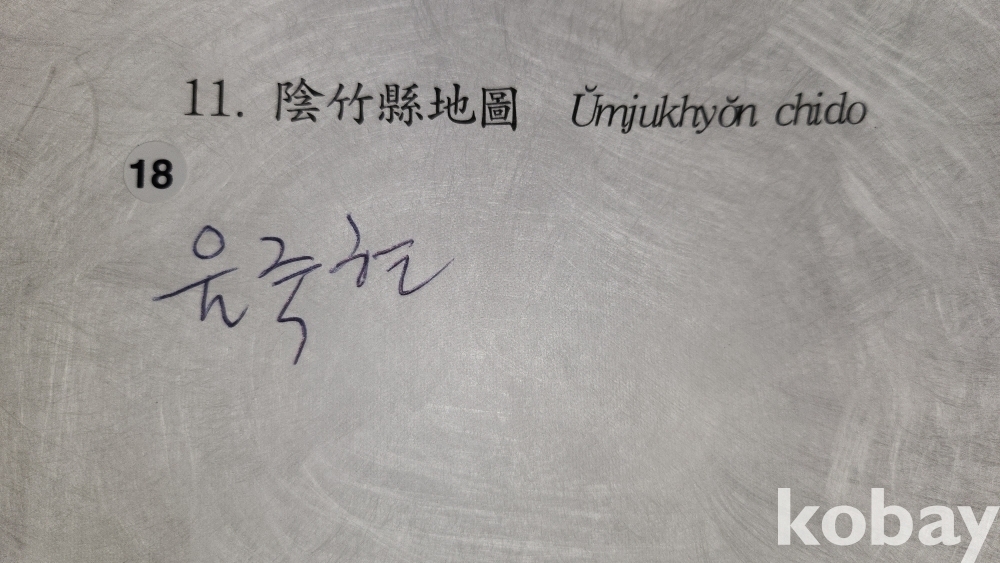 11. 陰竹縣地圖 Ŭmjukhyŏn chido
18
음죽현
kobay